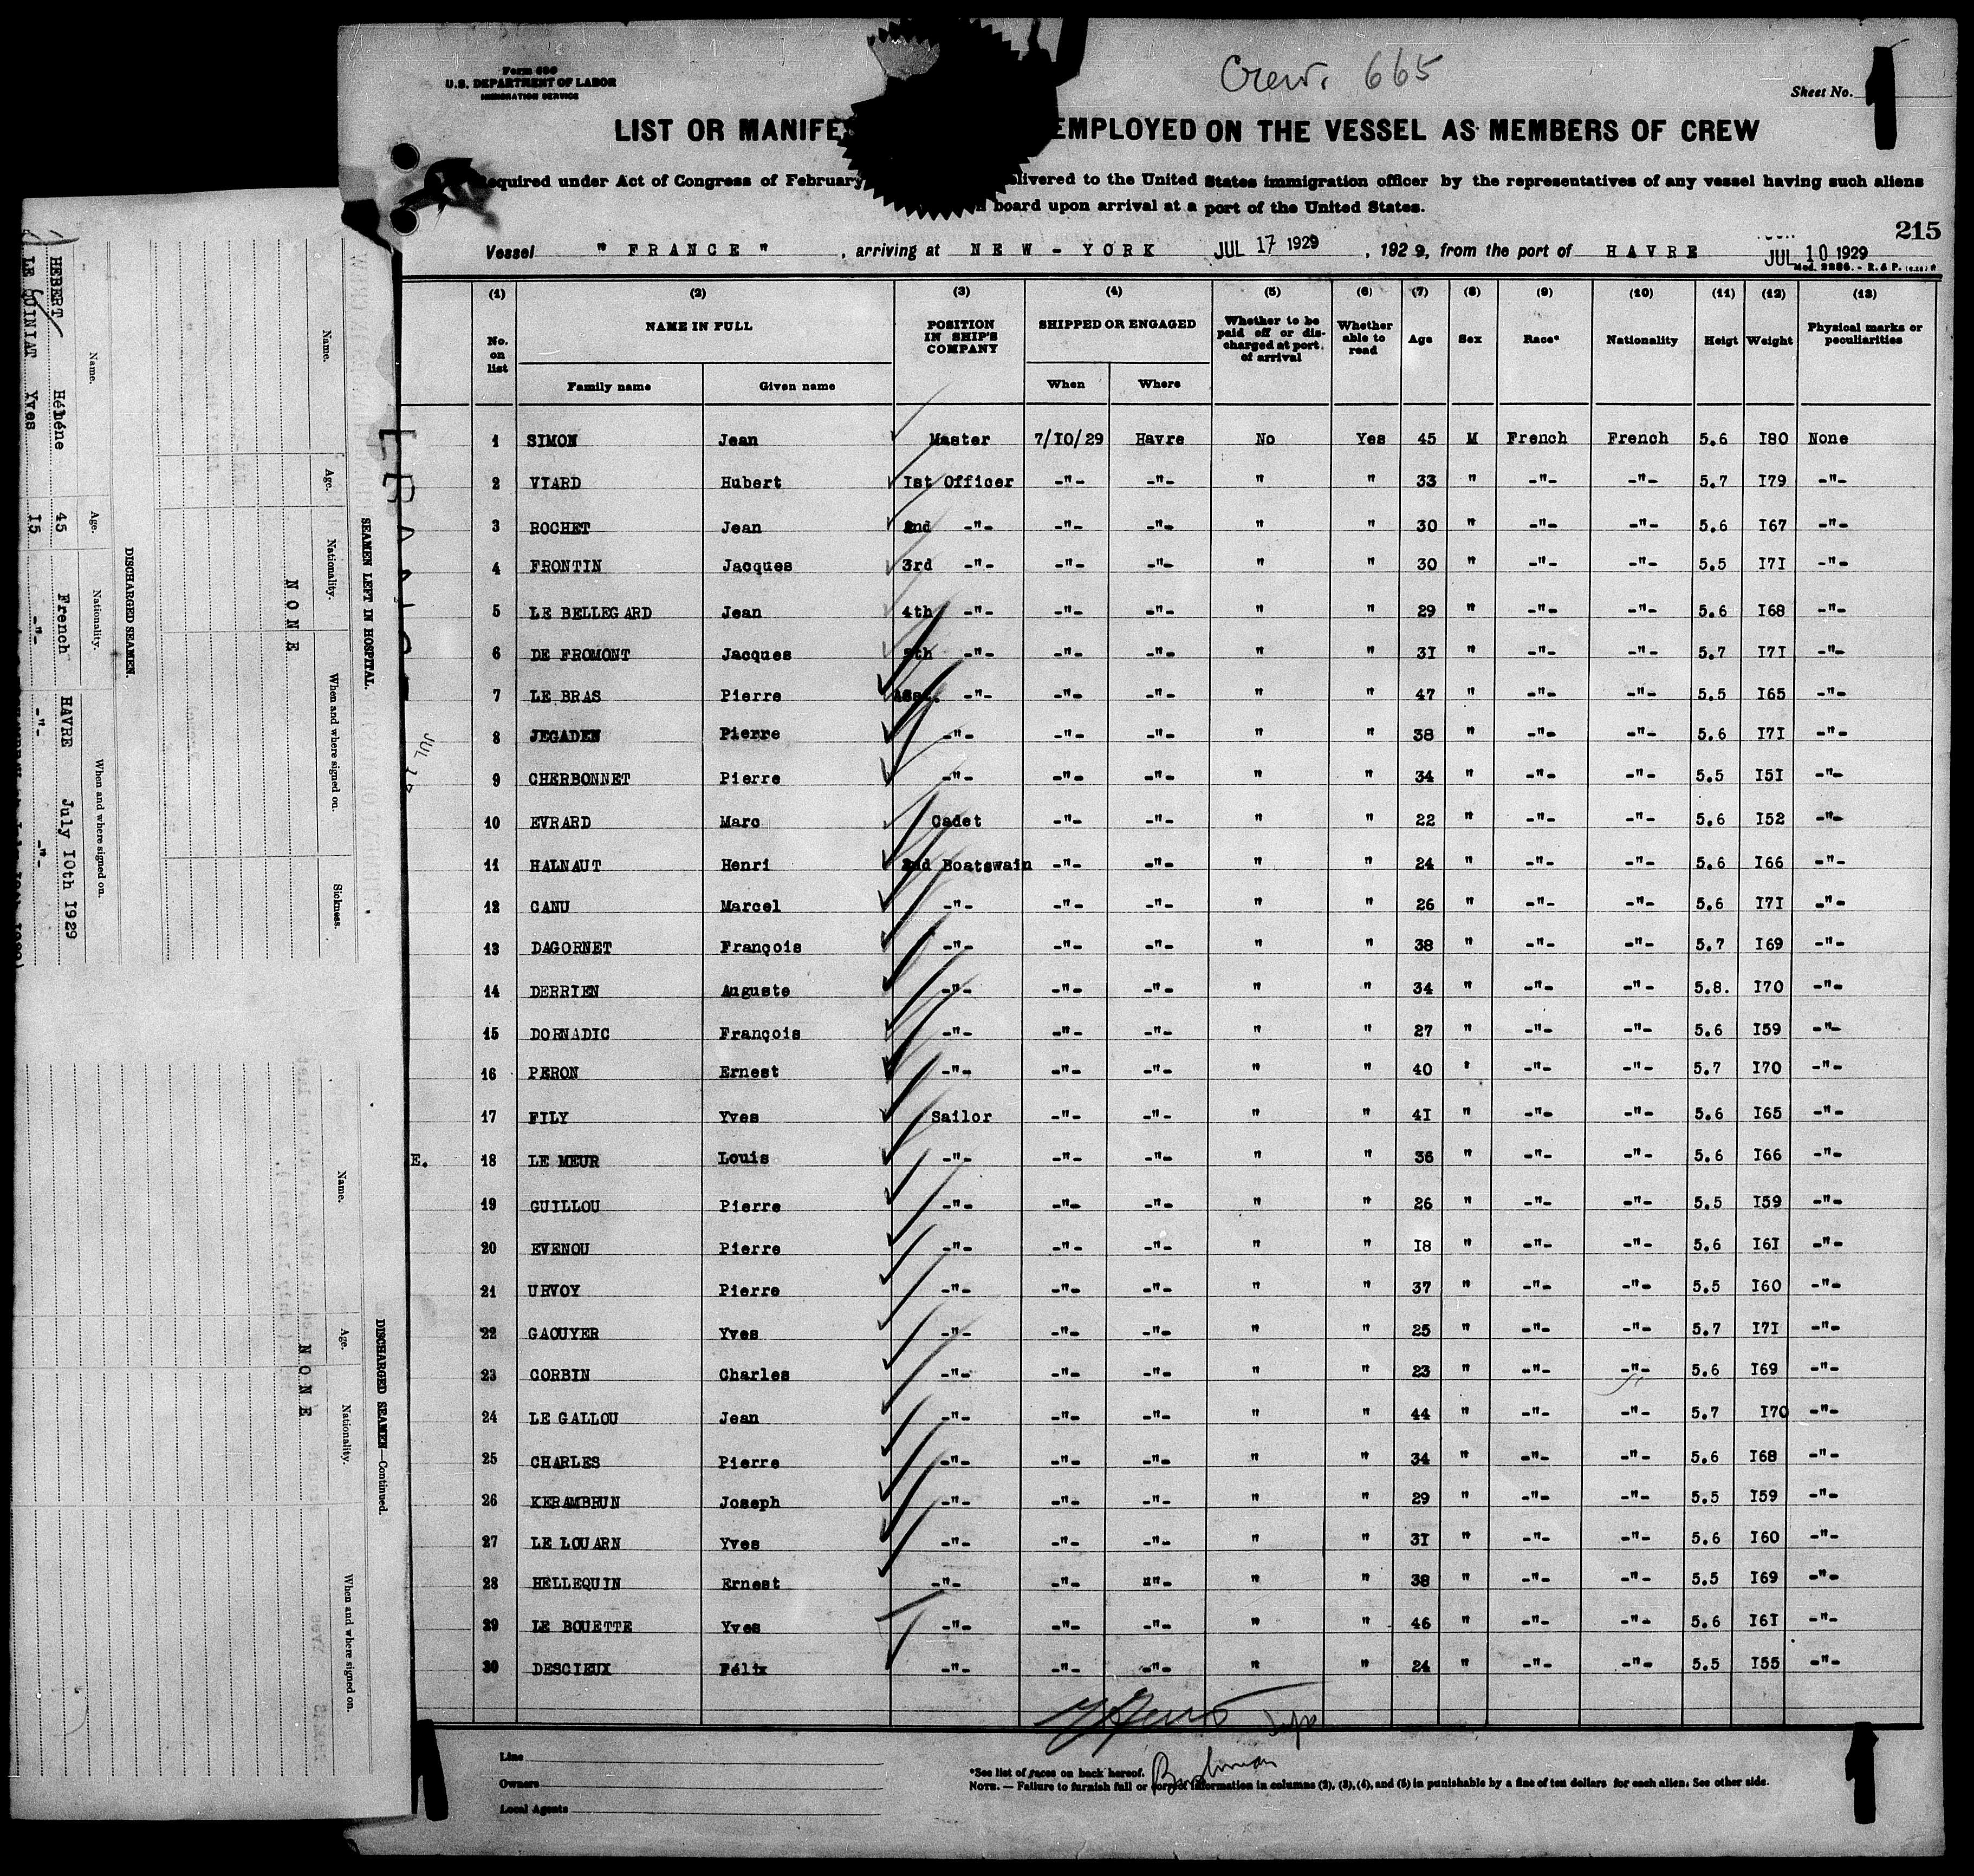 Crew. 665
Form 680
U.S. DEPARTMENT OF LABOR
IMMIGRATION SERVICE
Sheet No. 1
LIST OR MANIFES EMPLOYED ON THE VESSEL AS MEMBERS OF CREW
equired under Act of Congress of February livered to the United States immigration officer by the representatives of any vessel having such aliens
board upon arrival at a port of the United States.
215
Vessel "FRANCE", arriving at NEW-YORK JUL 17 1929, 1929, from the port of HAVRE JUL 10 1929
Mod. 2286. - R. & P.
(1) (2) (3) (4) (5) (6) (7) (8) (9) (10) (11) (12) (13)
No. on list NAME IN FULL POSITION IN SHIP'S COMPANY SHIPPED OR ENGAGED Whether to be paid off or discharged at port of arrival Whether able to read Age Sex Race* Nationality Heigt Weight Physical marks or peculiarities
Family name Given name When Where
1 SIMON Jean Master 7/I0/29 Havre No Yes 45 M French French 5.6 I80 None
2 VIARD Hubert Ist Officer -"- -"- " " 33 " -"- -"- 5.7 I79 -"-
3 ROCHET Jean 2nd -"- -"- -"- " " 30 " -"- -"- 5.6 I67 -"-
4 FRONTIN Jacques 3rd -"- -"- -"- " " 30 " -"- -"- 5.5 I7I -"-
5 LE BELLEGARD Jean 4th -"- -"- -"- " " 29 " -"- -"- 5.6 I68 -"-
6 DE FROMONT Jacques 5th -"- -"- -"- " " 3I " -"- -"- 5.7 I7I -"-
7 LE BRAS Pierre Ass. -"- -"- -"- " " 47 " -"- -"- 5.5 I65 -"-
8 JEGADEN Pierre -"- -"- -"- " " 38 " -"- -"- 5.6 I7I -"-
9 CHERBONNET Pierre -"- -"- -"- " " 34 " -"- -"- 5.5 I5I -"-
10 EVRARD Marc Cadet -"- -"- " " 22 " -"- -"- 5.6 I52 -"-
11 HALNAUT Henri 2nd Boatswain -"- -"- " " 24 " -"- -"- 5.6 I66 -"-
12 CANU Marcel -"- -"- -"- " " 26 " -"- -"- 5.6 I7I -"-
13 DAGORNET François -"- -"- -"- " " 38 " -"- -"- 5.7 I69 -"-
14 DERRIEN Auguste -"- -"- -"- " " 34 " -"- -"- 5.8. I70 -"-
15 DORNADIC François -"- -"- -"- " " 27 " -"- -"- 5.6 I59 -"-
16 PERON Ernest -"- -"- -"- " " 40 " -"- -"- 5.7 I70 -"-
17 FILY Yves Sailor -"- -"- " " 4I " -"- -"- 5.6 I65 -"-
E. 18 LE MEUR Louis -"- -"- -"- " " 36 " -"- -"- 5.6 I66 -"-
19 GUILLOU Pierre -"- -"- -"- " " 26 " -"- -"- 5.5 I59 -"-
20 EVENOU Pierre -"- -"- -"- " " I8 " -"- -"- 5.6 I6I -"-
21 URVOY Pierre -"- -"- -"- " " 37 " -"- -"- 5.5 I60 -"-
22 GAOUYER Yves -"- -"- -"- " " 25 " -"- -"- 5.7 I7I -"-
23 CORBIN Charles -"- -"- -"- " " 23 " -"- -"- 5.6 I69 -"-
24 LE GALLOU Jean -"- -"- -"- " " 44 " -"- -"- 5.7 I70 -"-
25 CHARLES Pierre -"- -"- -"- " " 34 " -"- -"- 5.6 I68 -"-
26 KERAMBRUN Joseph -"- -"- -"- " " 29 " -"- -"- 5.5 I59 -"-
27 LE LOUARN Yves -"- -"- -"- " " 3I " -"- -"- 5.6 I60 -"-
28 HELLEQUIN Ernest -"- -"- "- " " 38 " -"- -"- 5.5 I69 -"-
29 LE BOUETTE Yves -"- -"- -"- " " 46 " -"- -"- 5.6 I6I -"-
30 DESCIEUX Félix -"- -"- -"- " " 24 " -"- -"- 5.5 I55 -"-
Line
Owners
Local Agents
*See list of races on back hereof.
NOTE. — Failure to furnish full or correct information in columns (2), (3), (4), and (5) in punishable by a fine of ten dollars for each alien. See other side.
1
SEAMEN LEFT IN HOSPITAL.
Name. Age. Nationality. When and where signed on. Sickness.
NONE
DISCHARGED SEAMEN.
Name. Age. Nationality. When and where signed on.
HEBERT Héléne 45 French HAVRE July I0th I929
LE QUINIAT Yves I5 -"- -"- -"-
DISCHARGED SEAMEN—Continued.
Name. Age. Nationality. When and where signed on.
NONE